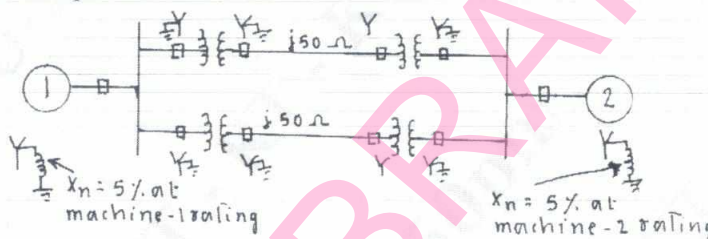 j50 Ω
1
2
j50 Ω
Xn = 5 % at
machine-1 rating
Xn = 5 % at
machine - 2 rating